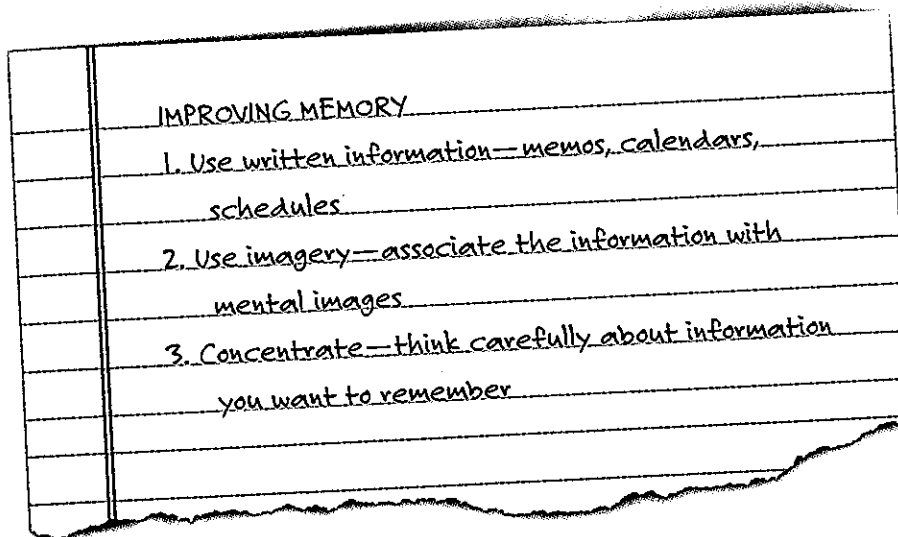 IMPROVING MEMORY
1. Use written information—memos, calendars,
schedules
2. Use imagery—associate the information with
mental images
3. Concentrate—think carefully about information
you want to remember